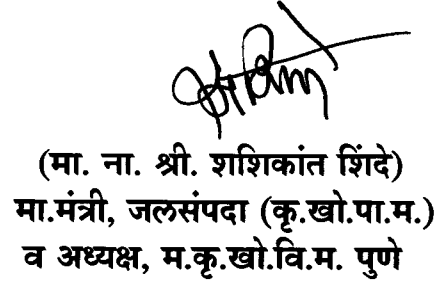 (मा. ना. श्री. शशिकांत शिंदे)
मा.मंत्री, जलसंपदा (कृ.खो.पा.म.)
व अध्यक्ष, म.कृ.खो.वि.म. पुणे